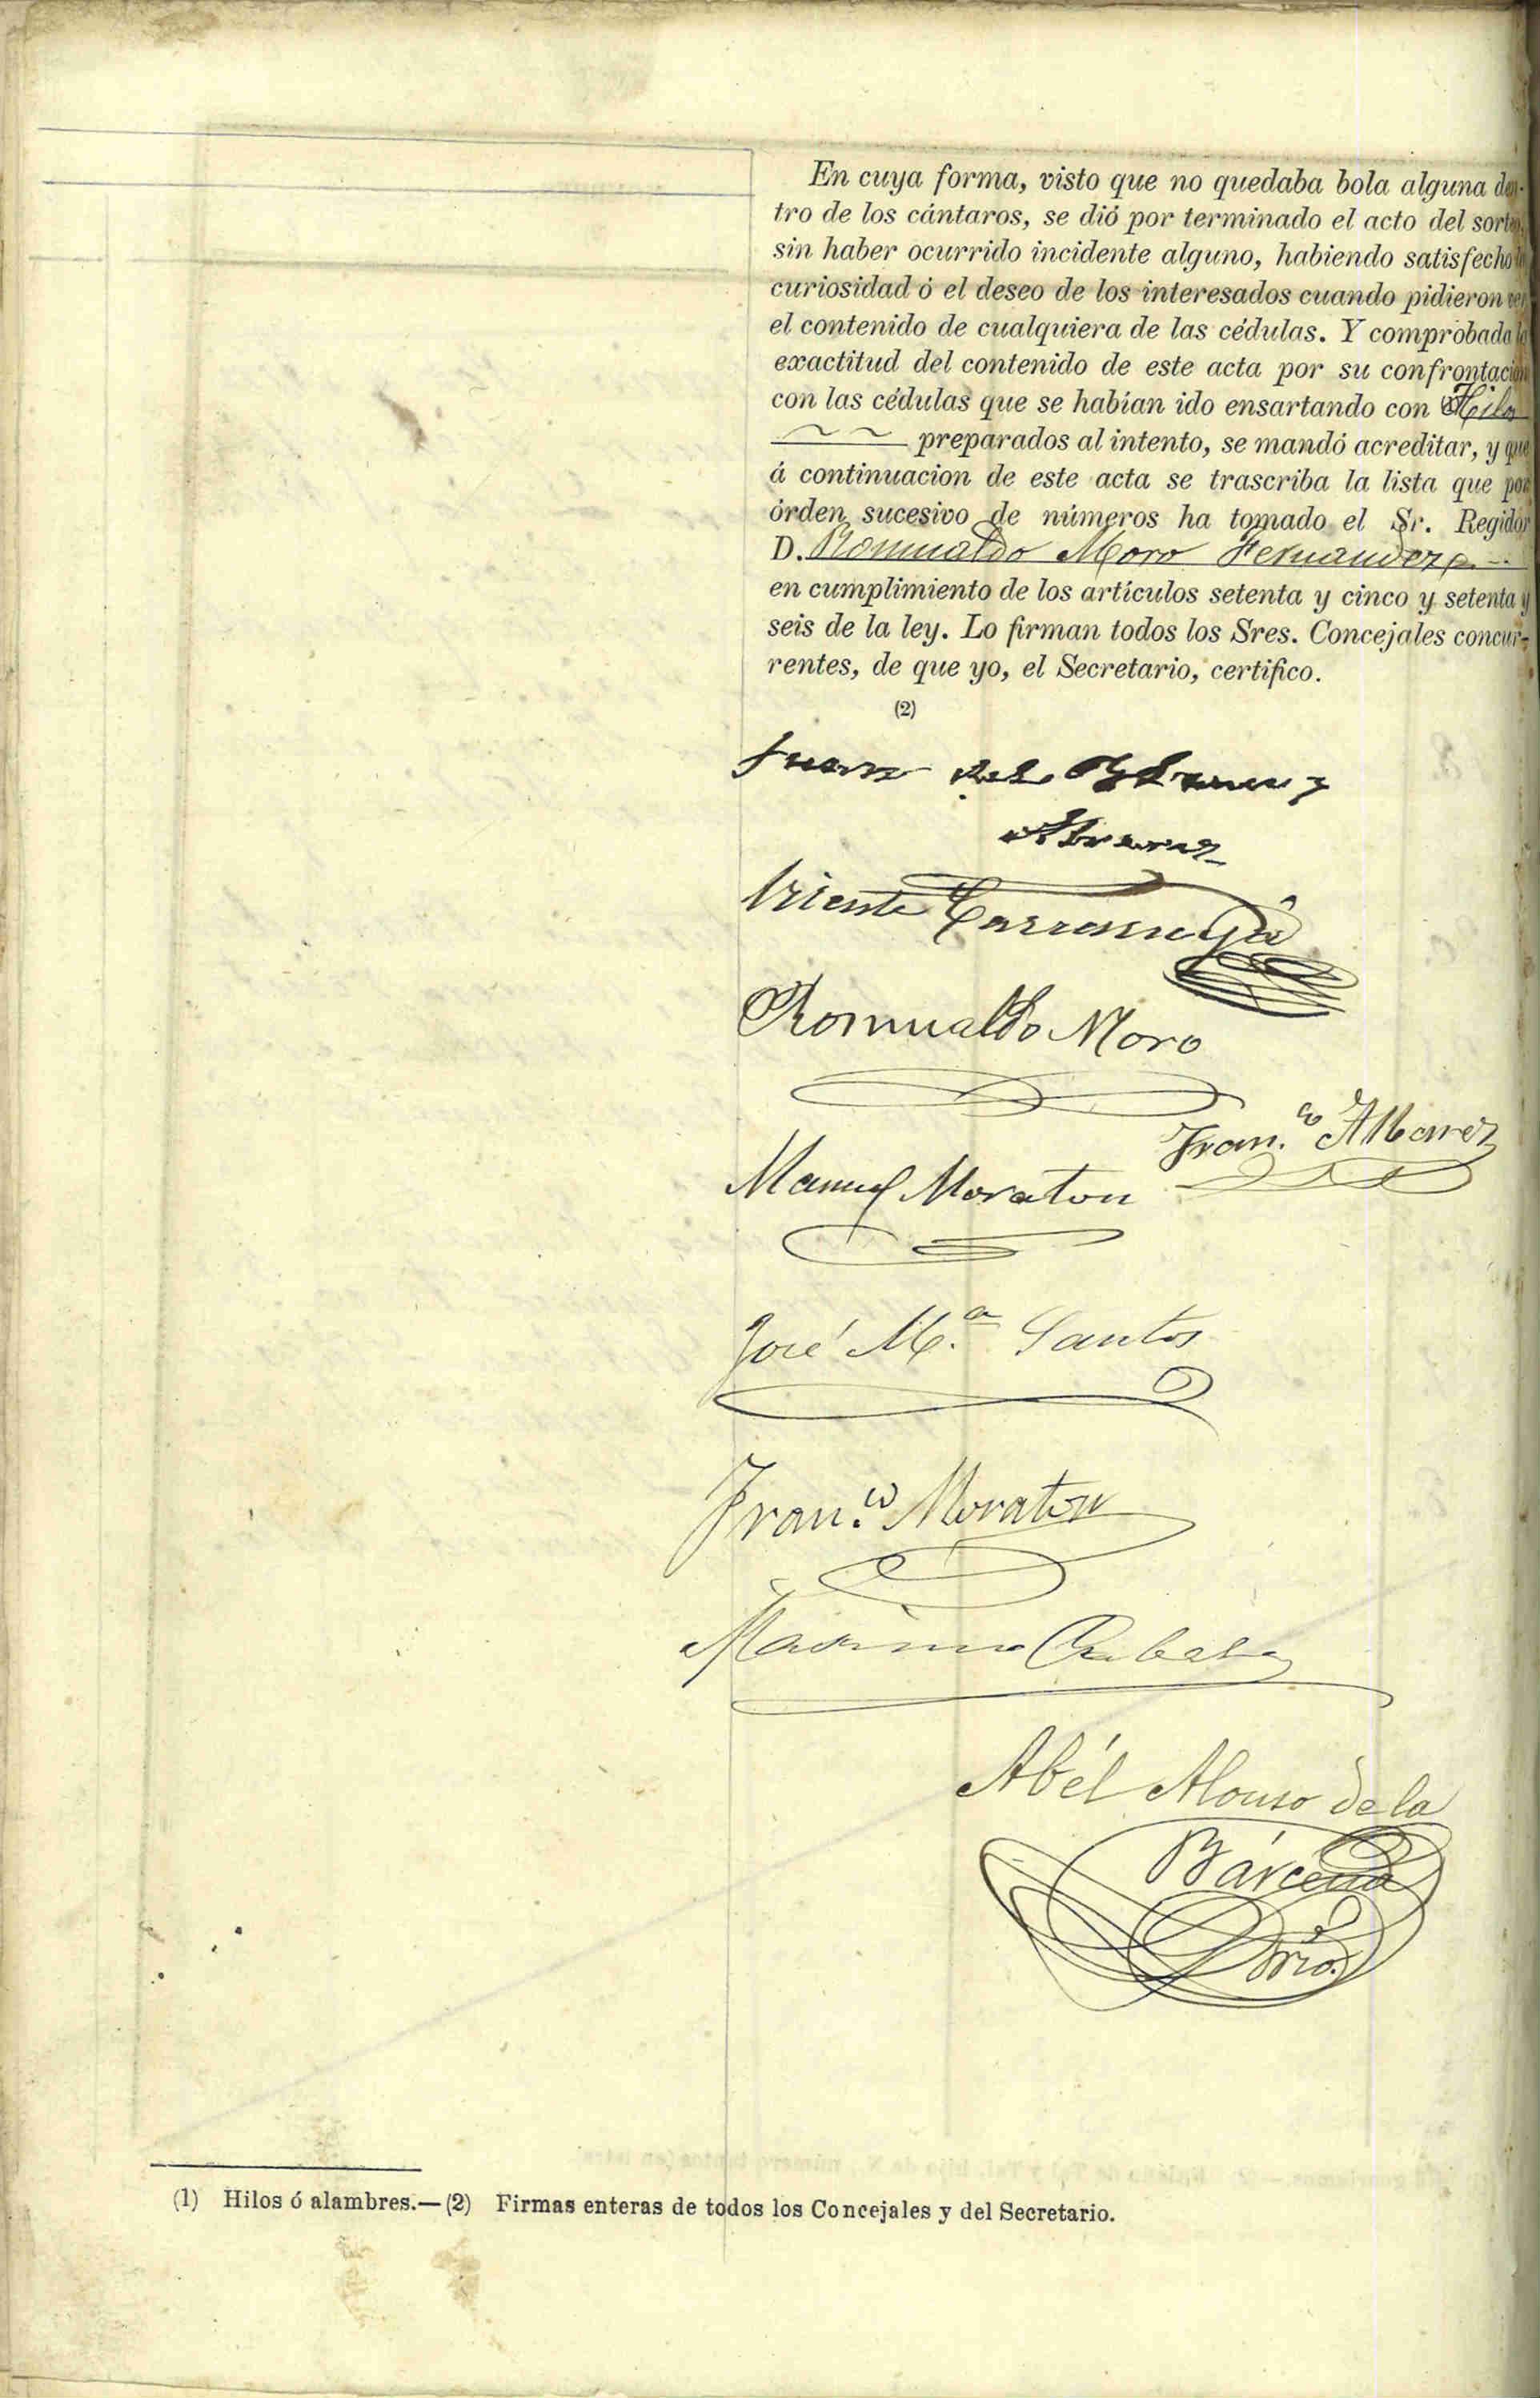 En cuya forma, visto que no quedaba bola alguna den-
tro de los cántaros, se dió por terminado el acto del sorteo,
sin haber ocurrido incidente alguno, habiendo satisfecho la
curiosidad ó el deseo de los interesados cuando pidieron ver
el contenido de cualquiera de las cédulas. Y comprobada la
exactitud del contenido de este acta por su confrontacion
con las cédulas que se habían ido ensartando con Hilos
preparados al intento, se mandó acreditar, y que
á continuacion de este acta se trascriba la lista que por
órden sucesivo de números ha tomado el Sr. Regidor
D. Romualdo Moro Fernandez
en cumplimiento de los artículos setenta y cinco y setenta y
seis de la ley. Lo firman todos los Sres. Concejales concur-
rentes, de que yo, el Secretario, certifico.
(2)
Juan
Vicente
Romualdo Moro
Fran.co Alvarez
Manuel Moraton
José M.a Santos
Fran.co Moraton
Maximo
Abél Alonso de la
Bárcena
Srio.
(1) Hilos ó alambres.—(2) Firmas enteras de todos los Concejales y del Secretario.